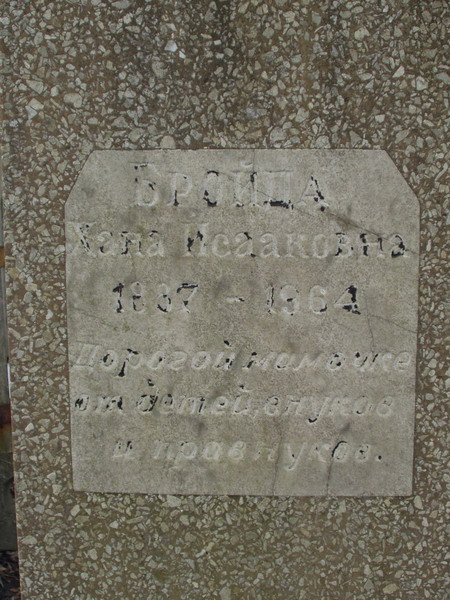 БРОЙДА
Хана Исааковна
1887 - 1964
Дорогой мамочке
от детей, внуков
и правнуков.